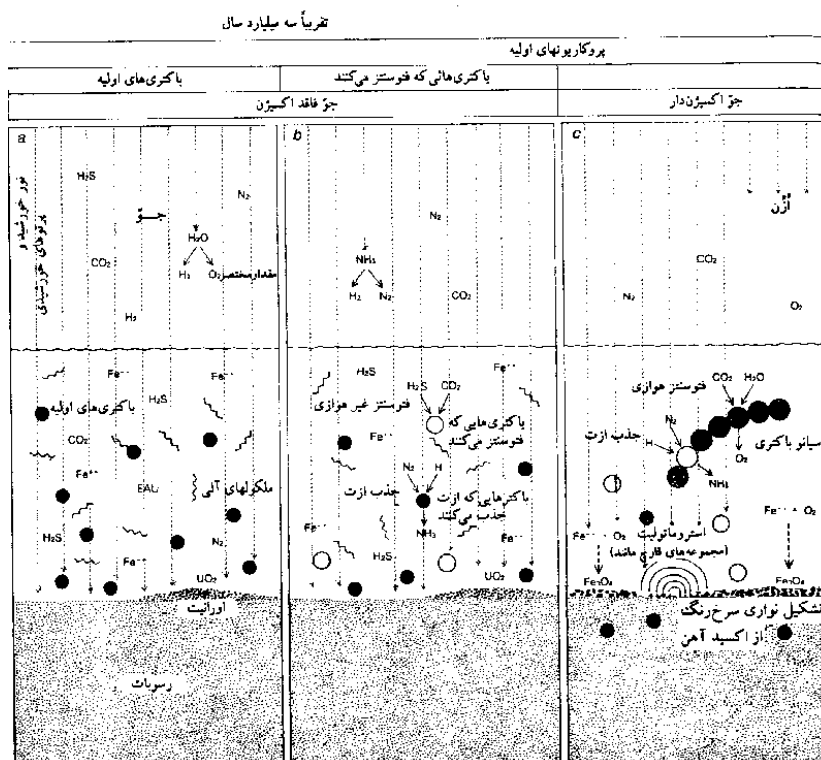 تقریباً سه میلیارد سال
پروکاریونهای اولیه
باکتری‌های اولیه
باکتری‌هائی که فتوسنتز می‌کنند
جوّ فاقد اکسیژن
جوّ اکسیژن‌دار
a
نور خورشید و
پرتوهای خورشیدی
H₂S
N₂
جــوّ
H₂O
CO₂
H₂
O₂
مقدار مختصر
H₂
Fe⁺⁺
Fe⁺⁺
H₂S
باکتری‌های اولیه
CO₂
Fe⁺⁺
EAU
ملکولهای آلی
H₂S
N₂
Fe⁺⁺
UO₂
اورانیت
رسوبات
b
N₂
NH₃
H₂
N₂
CO₂
H₂S
Fe⁺⁺
H₂S
CO₂
فتوسنتز غیر هوازی
Fe⁺⁺
باکتری‌هایی که
فتوسنتز می‌کنند
N₂
H
جذب ازت
باکترهایی که ازت
جذب می‌کنند
Fe⁺⁺
NH₃
Fe⁺⁺
H₂S
UO₂
c
اُزُن
CO₂
N₂
O₂
CO₂
H₂O
فتوسنتز هوازی
N₂
جذب ازت
سیانو باکتری
H
O₂
NH₃
Fe⁺⁺
O₂
استروماتولیت
Fe⁺⁺
+
O₂
(مجموعه‌های قارچ مانند)
Fe₃O₄
Fe₃O₄
تشکیل نواری سرخ‌رنگ
از اکسید آهن